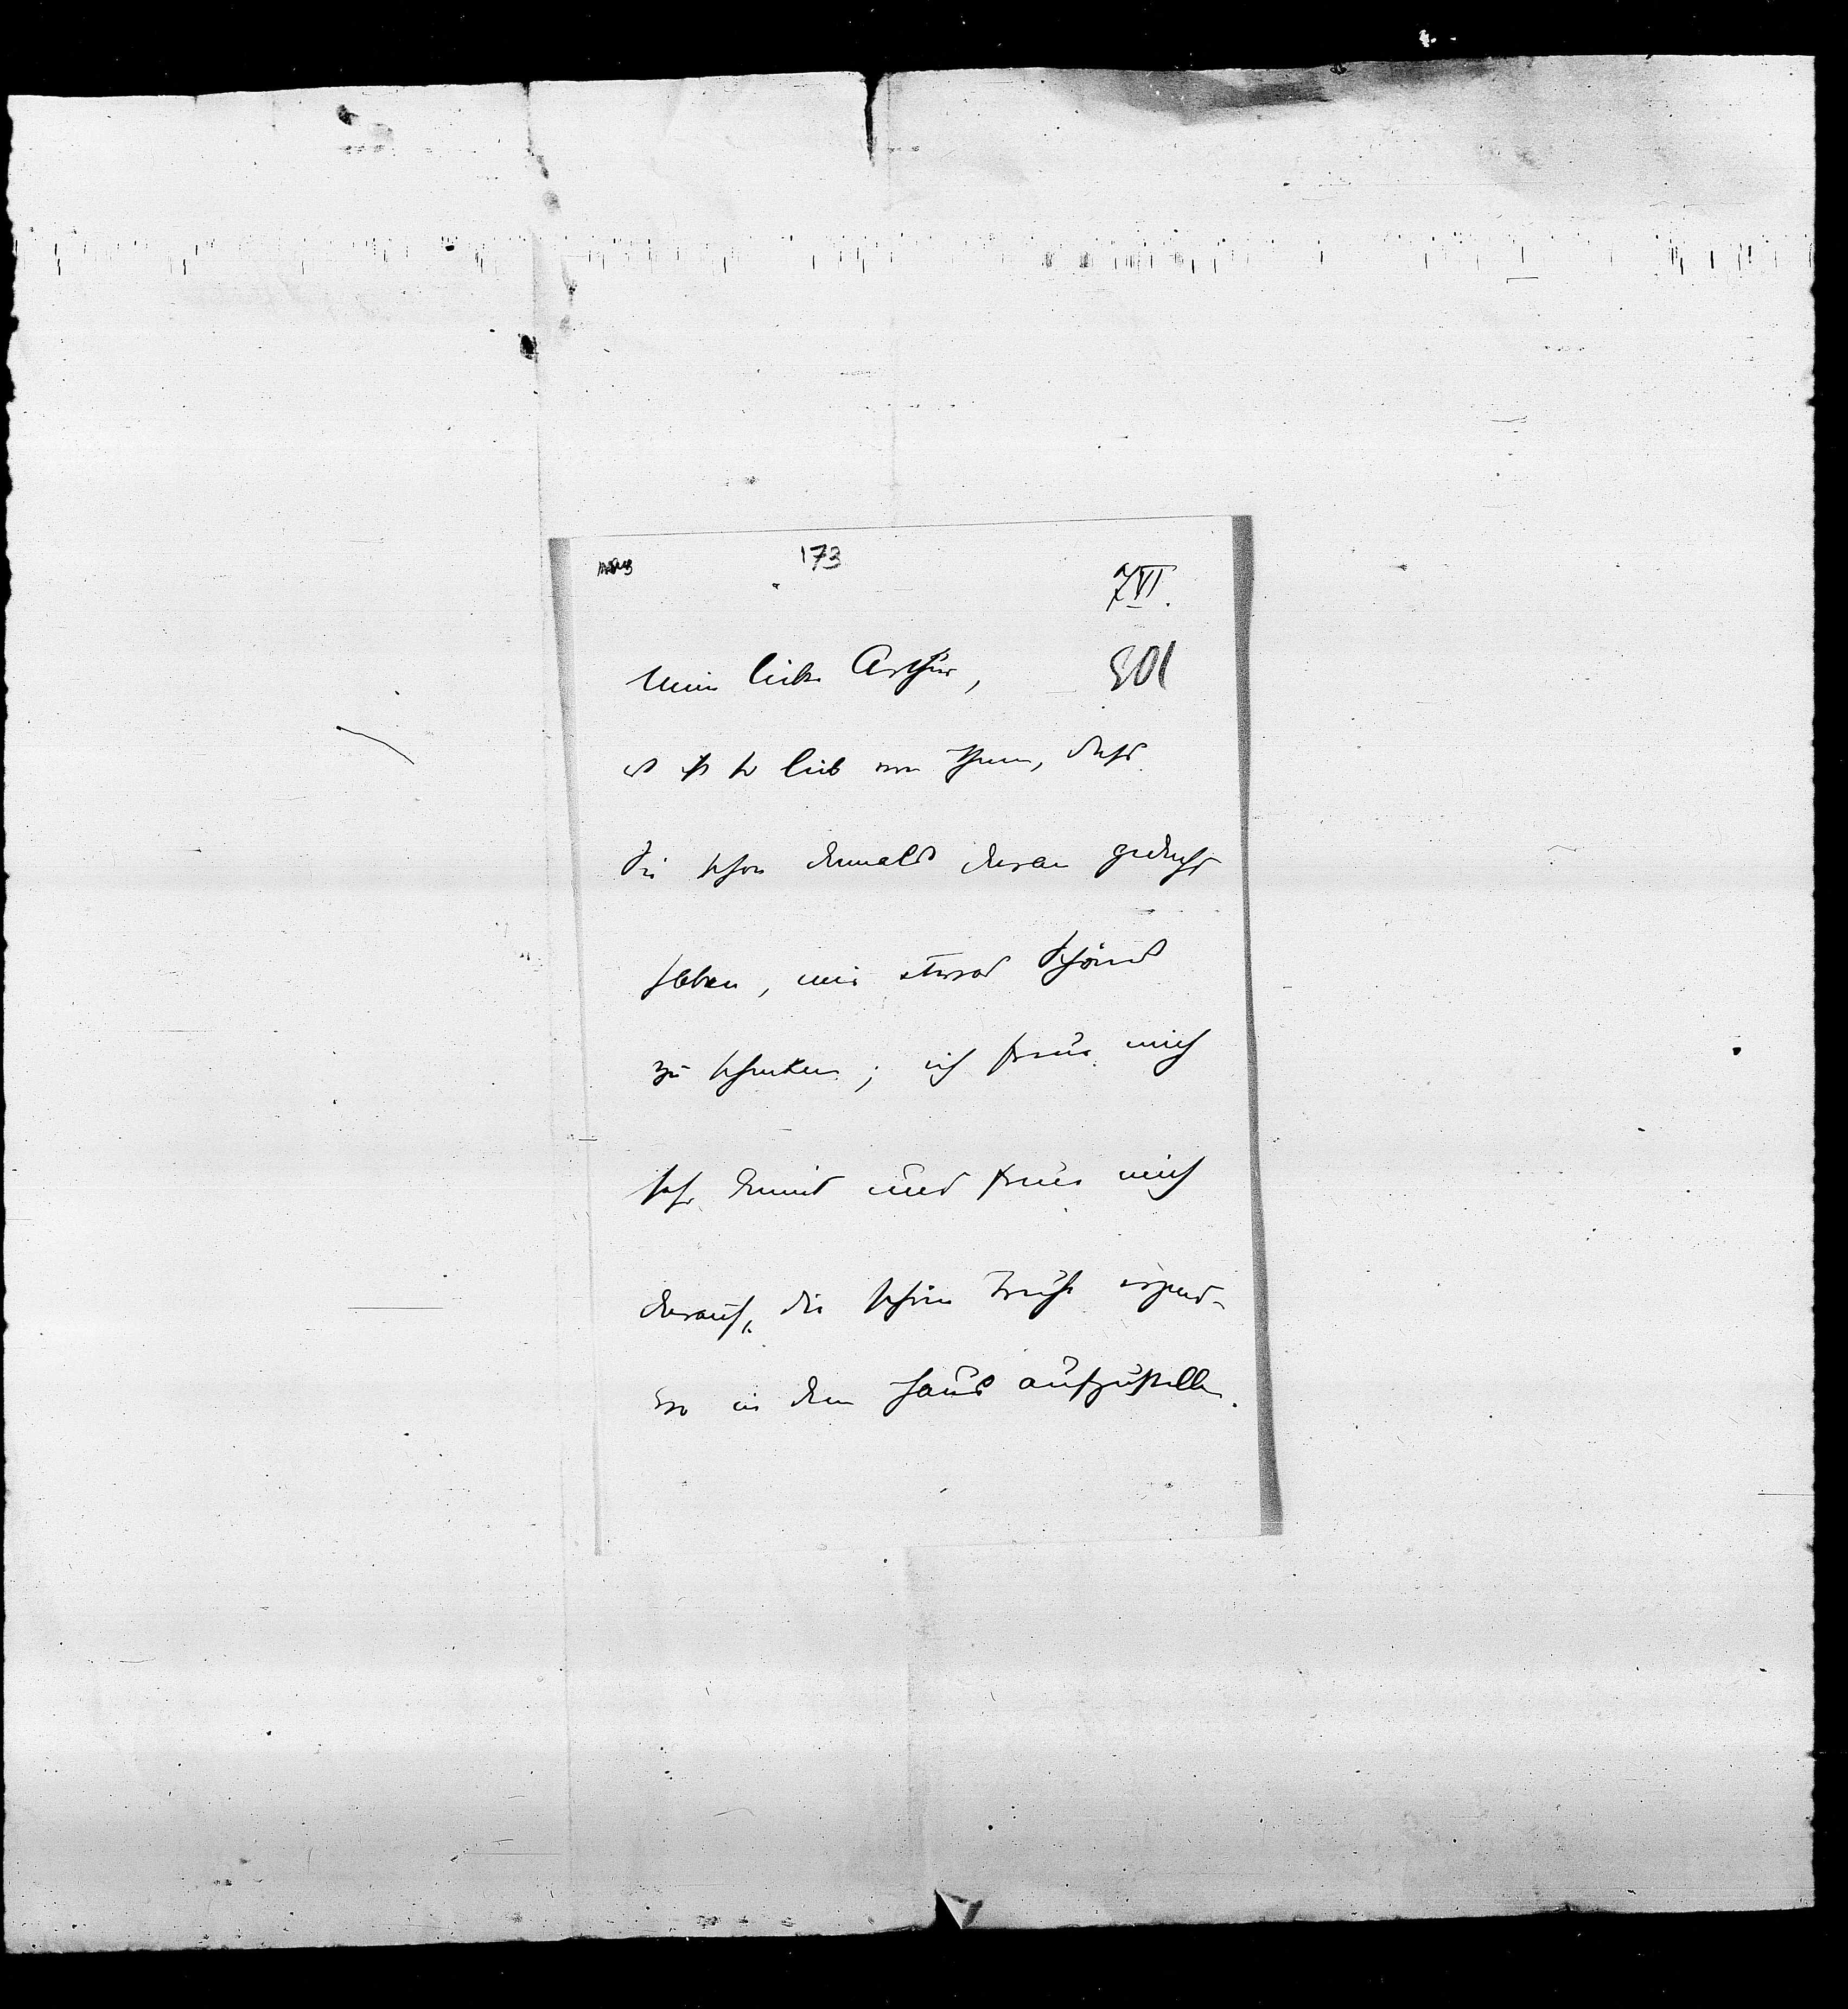 173
7 VI.
901
Mein lieber Arthur,
es ist so lieb von Ihnen, dass
Sie schon damals daran gedacht
haben, mir etwas schönes
zu schenken; ich freue mich
sehr damit und freue mich
darauf, die schöne Truhe irgend-
wo in dem Haus aufzustellen.